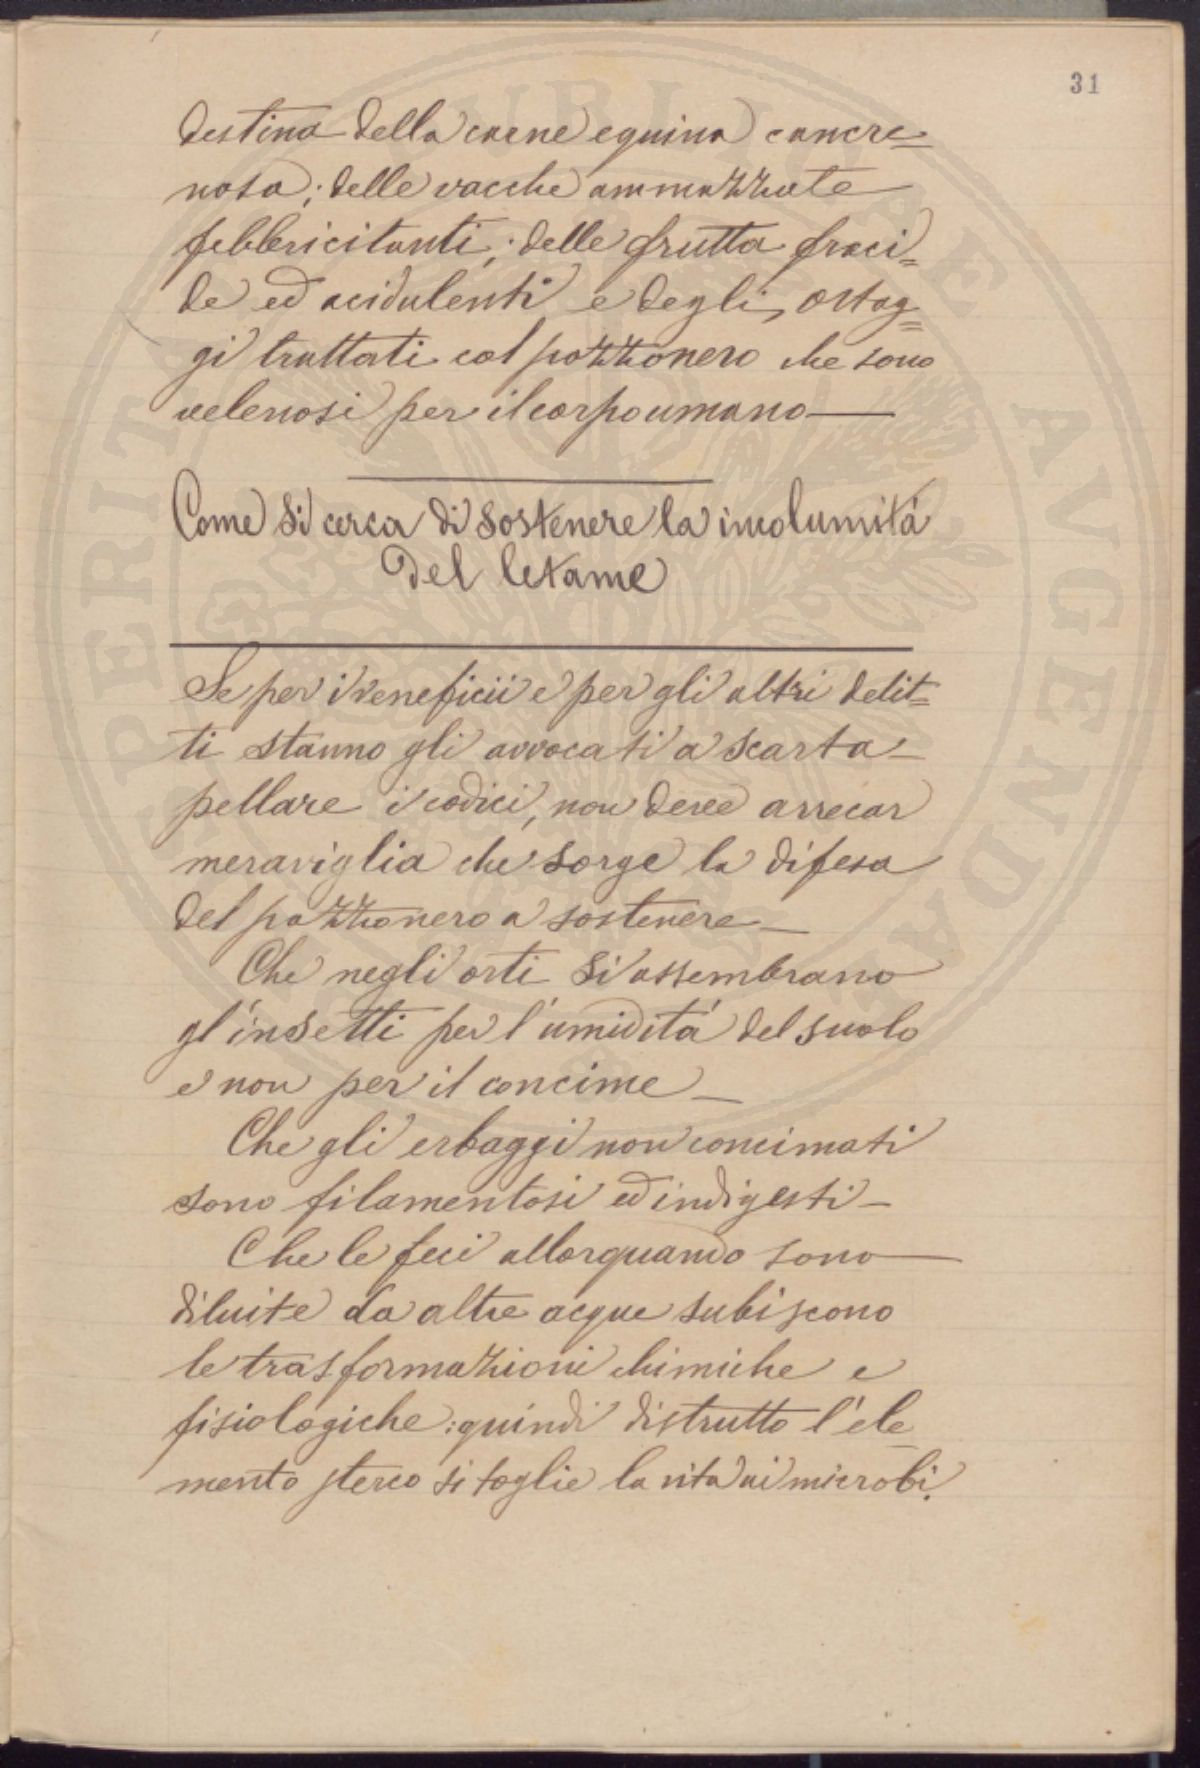 31
destina della carne equina cancre=
nosa; delle vacche ammazzate
febbricitanti; delle frutta fraci=
de ed acidulenti e degli ortag=
gi trattati col pozzonero che sono
velenosi per il corpo umano—
Come si cerca di sostenere la incolumitá
del letame
Se per i veneficii e per gli altri delit=
ti stanno gli avvocati a scarta-
pellare i codici, non deve arrecar
meraviglia che sorge la difesa
del pozzonero a sostenere—
Che negli orti si assembrano
gl'insetti per l'umiditá del suolo
e non per il concime—
Che gli erbaggi non concimati
sono filamentosi ed indigesti—
Che le feci allorquando sono—
diluite da altre acque subiscono
le trasformazioni chimiche e
fisiologiche: quindi distrutto l'ele-
mento sterco si toglie la vita ai microbi.
PERITA PUBLICAE AVGENDAE